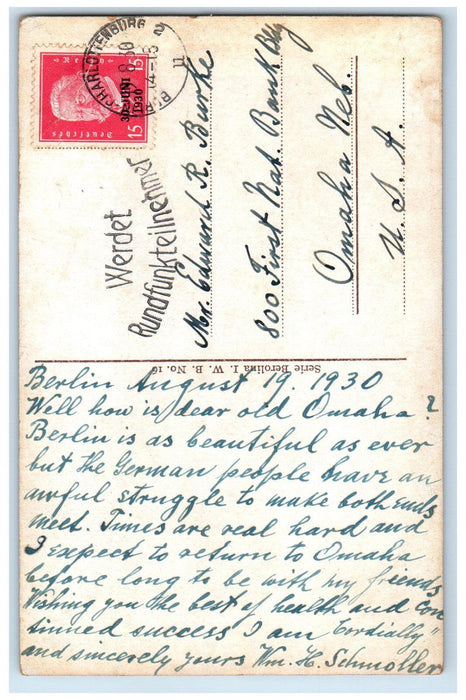 BERLIN-CHARLOTTENBURG 2
Deutsches Reich
15 15
30. JUNI
1930
Werdet
Rundfunkteilnehmer
Mr. Edward R. Burke
800 First Nat. Bank Bldg
Omaha Neb.
U. S. A.
Serie Berolina I. W. B. No. 16
Berlin August 19. 1930
Well how is dear old Omaha?
Berlin is as beautiful as ever
but the German people have an
awful struggle to make both ends
meet. Times are real hard and
I expect to return to Omaha
before long to be with my friends
Wishing you the best of health and con
tinned success I am "Cordially"
and sincerely yours Wm. H. Schmoller